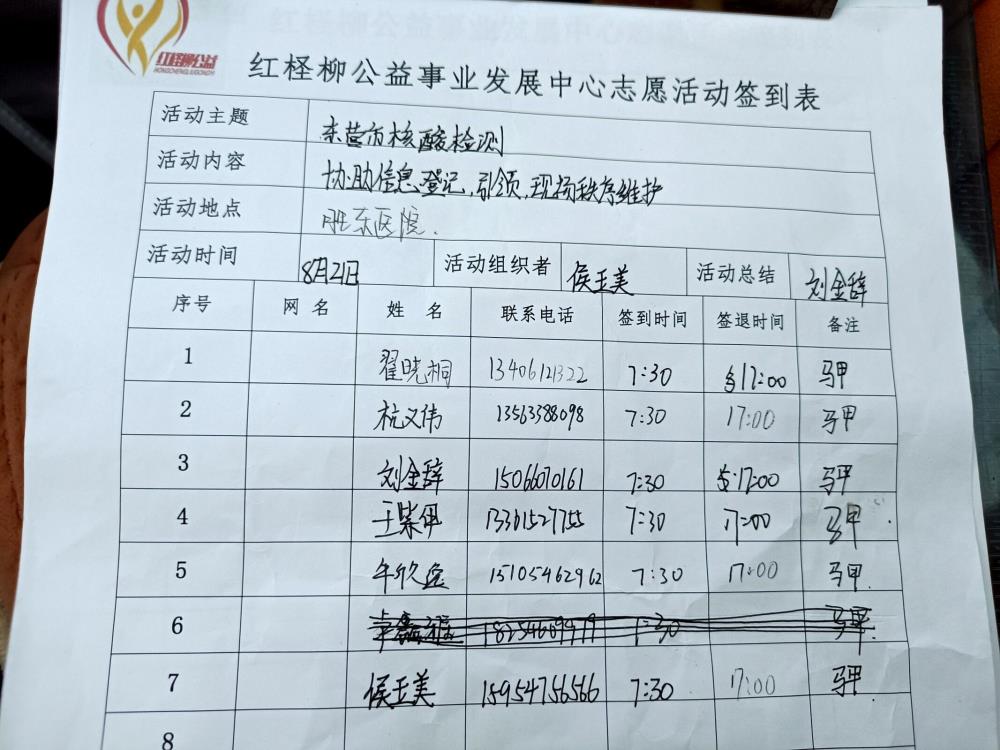 红柽柳公益
HONGCHENGLIUGONGYI
红柽柳公益事业发展中心志愿活动签到表
活动主题 东营市核酸检测
活动内容 协助信息登记,引领,现场秩序维护
活动地点 胜东医院.
活动时间 8月21日 活动组织者 侯玉美 活动总结 刘金辞
序号 网 名 姓 名 联系电话 签到时间 签退时间 备注
1 翟晓桐 13406121322 7:30 17:00 马甲
2 杭义伟 13563388098 7:30 17:00 马甲
3 刘金辞 15066070161 7:30 17:00 马甲
4 王紫伊 13361527755 7:30 17:00 马甲.
5 年欣 15105462962 7:30 17:00 马甲.
6 1:30 马甲.
7 侯玉美 15954756566 7:30 17:00 马甲.
8